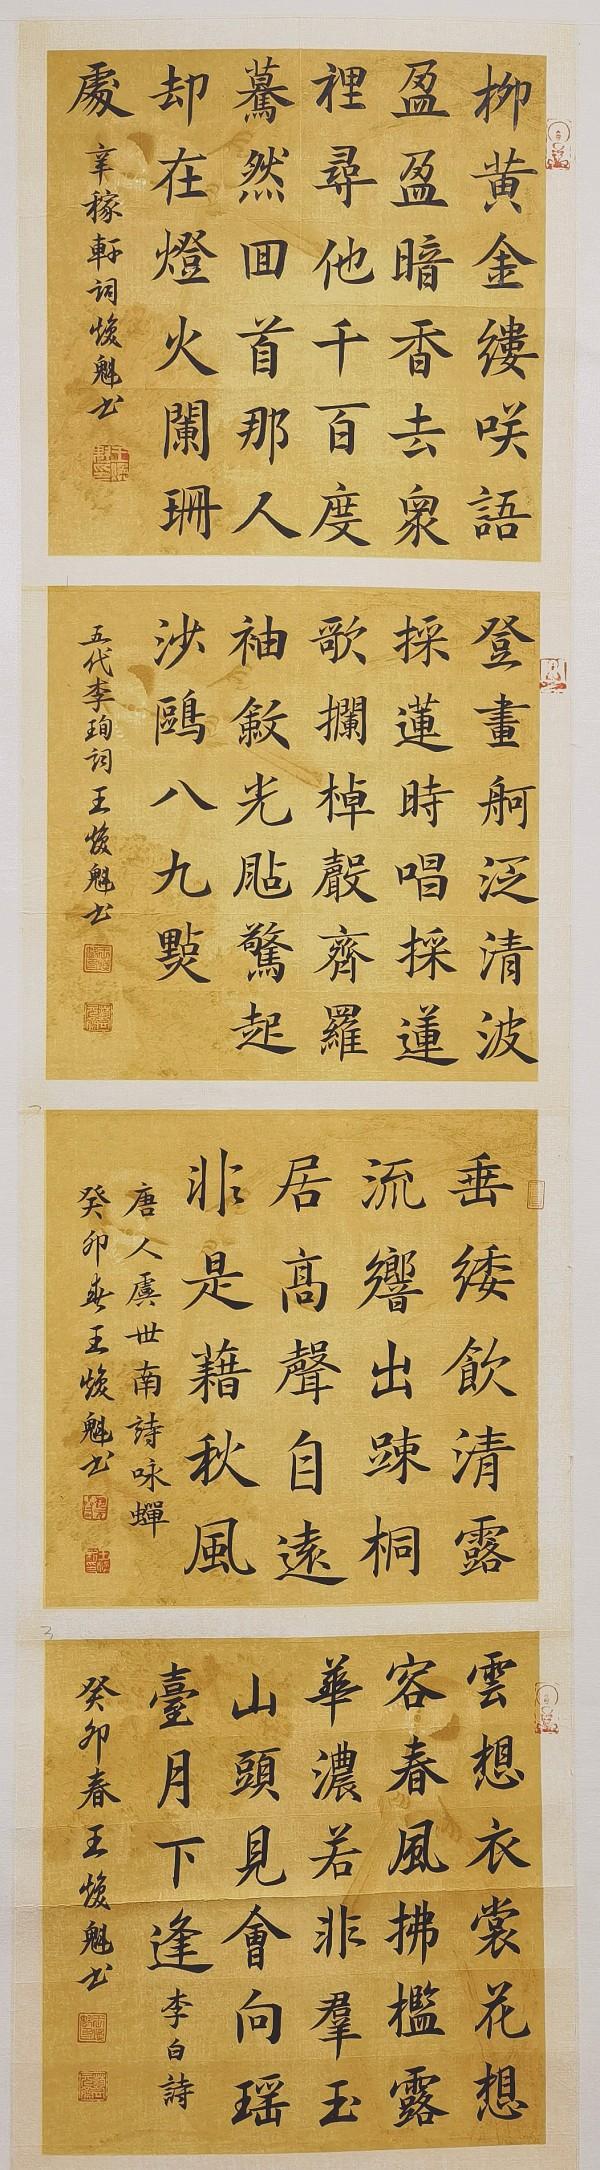 柳黄金缕咲語
盈盈暗香去衆
裡尋他千百度
驀然囬首那人
却在燈火闌珊
處
辛稼軒詞焕魁书
登畫舸泛清波
採蓮時唱採蓮
歌攔棹聲齊羅
袖斂光颭驚起
沙鷗八九點
五代李珣詞王焕魁书
垂緌飲清露
流響出踈桐
居高聲自遠
非是藉秋風
唐人虞世南詩咏蟬
癸卯春王焕魁书
雲想衣裳花想
容春風拂檻露
華濃若非羣玉
山頭見會向瑶
臺月下逢李白詩
癸卯春王焕魁书